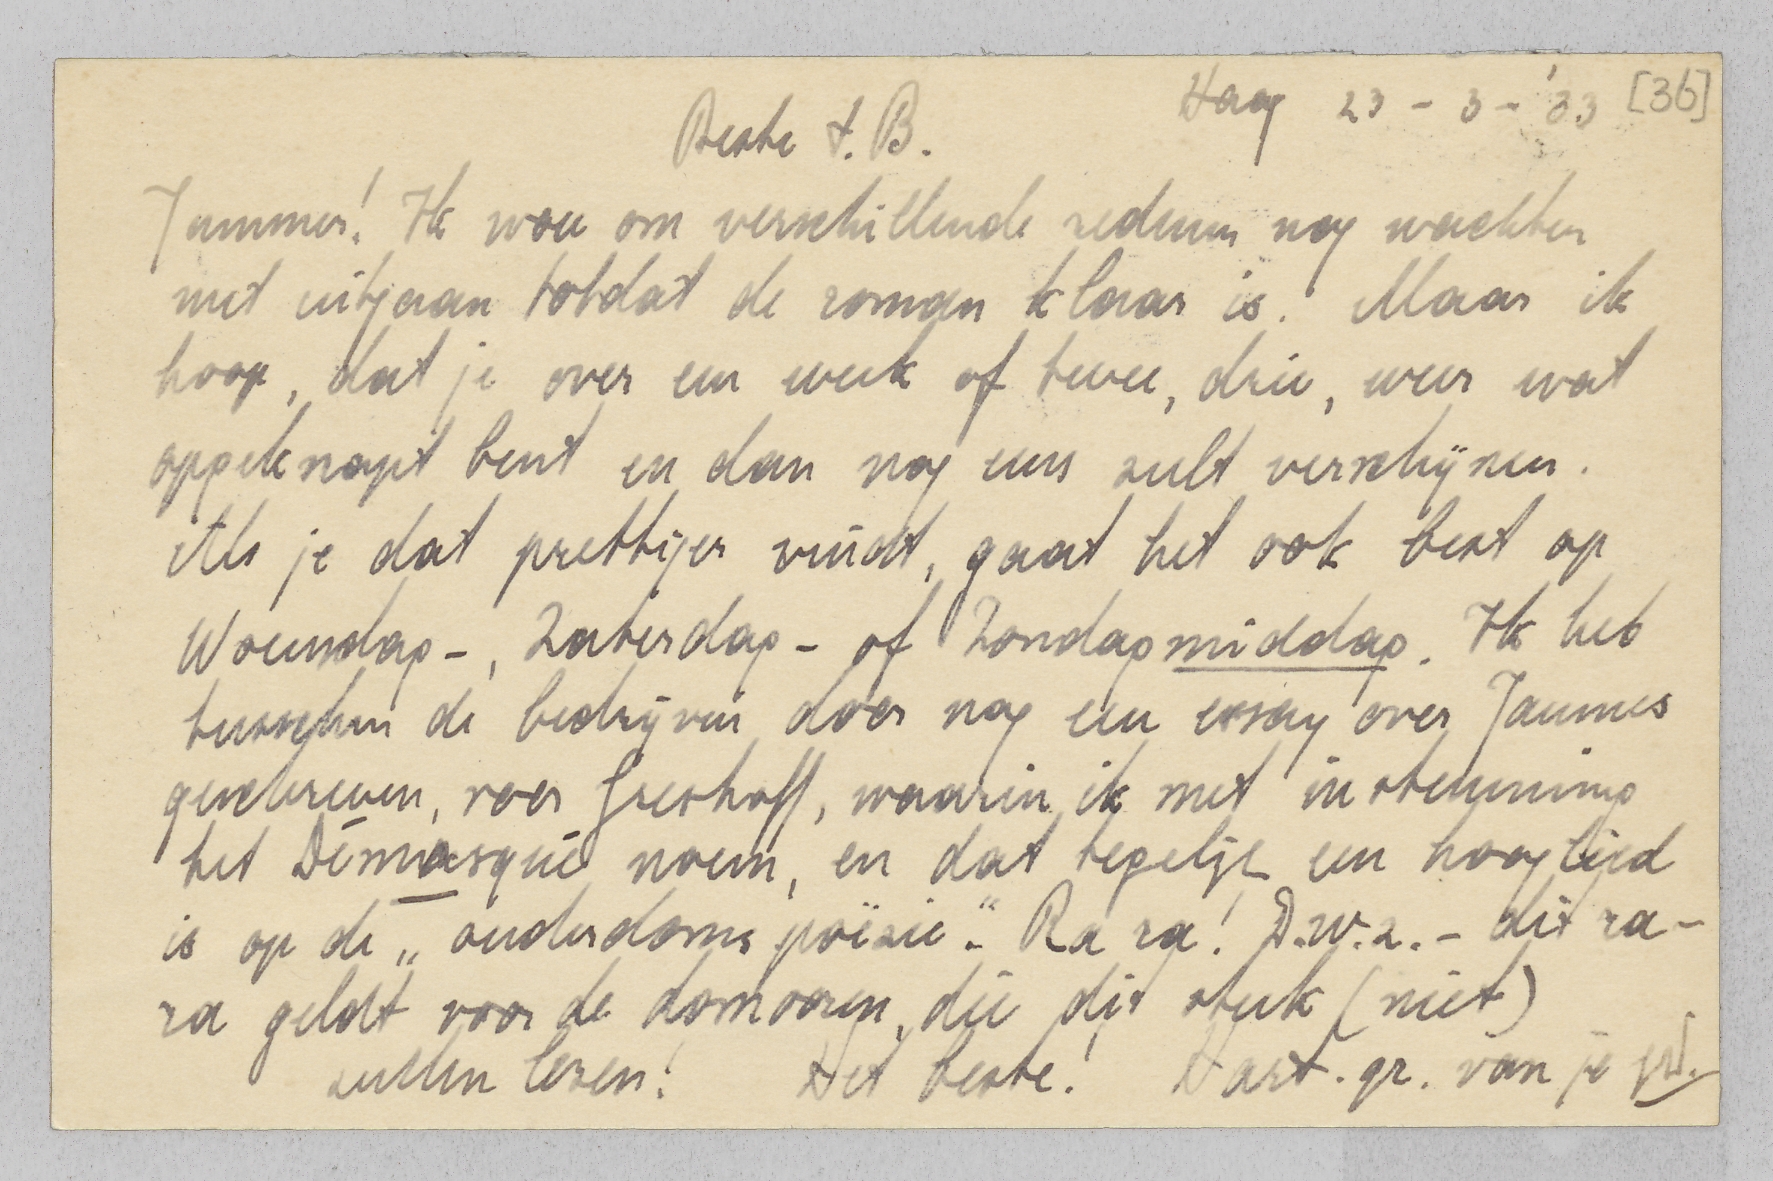 Haag 23-3-'33 [36]
Beste t. B.
Jammer! Ik wou om verschillende redenen nog wachten
met uitgaan totdat de roman klaar is. Maar ik
hoop, dat je over een week of twee, drie, weer wat
opgeknapt bent en dan nog eens zult verschijnen.
Als je dat prettiger vindt, gaat het ook best op
Woensdag-, Zaterdag- of Zondagmiddag. Ik heb
tusschen de bedrijven door nog een essay over Jammes
geschreven, voor Greshoff, waarin ik met instemming
het Démasqué noem, en dat tegelijk een hooglied
is op de „ouderdomspoëzie". Ra ra! D.w.z. - dit ra-
ra geldt voor de domooren, die dit stuk (niet)
zullen lezen! Het beste! Hart. gr. van je